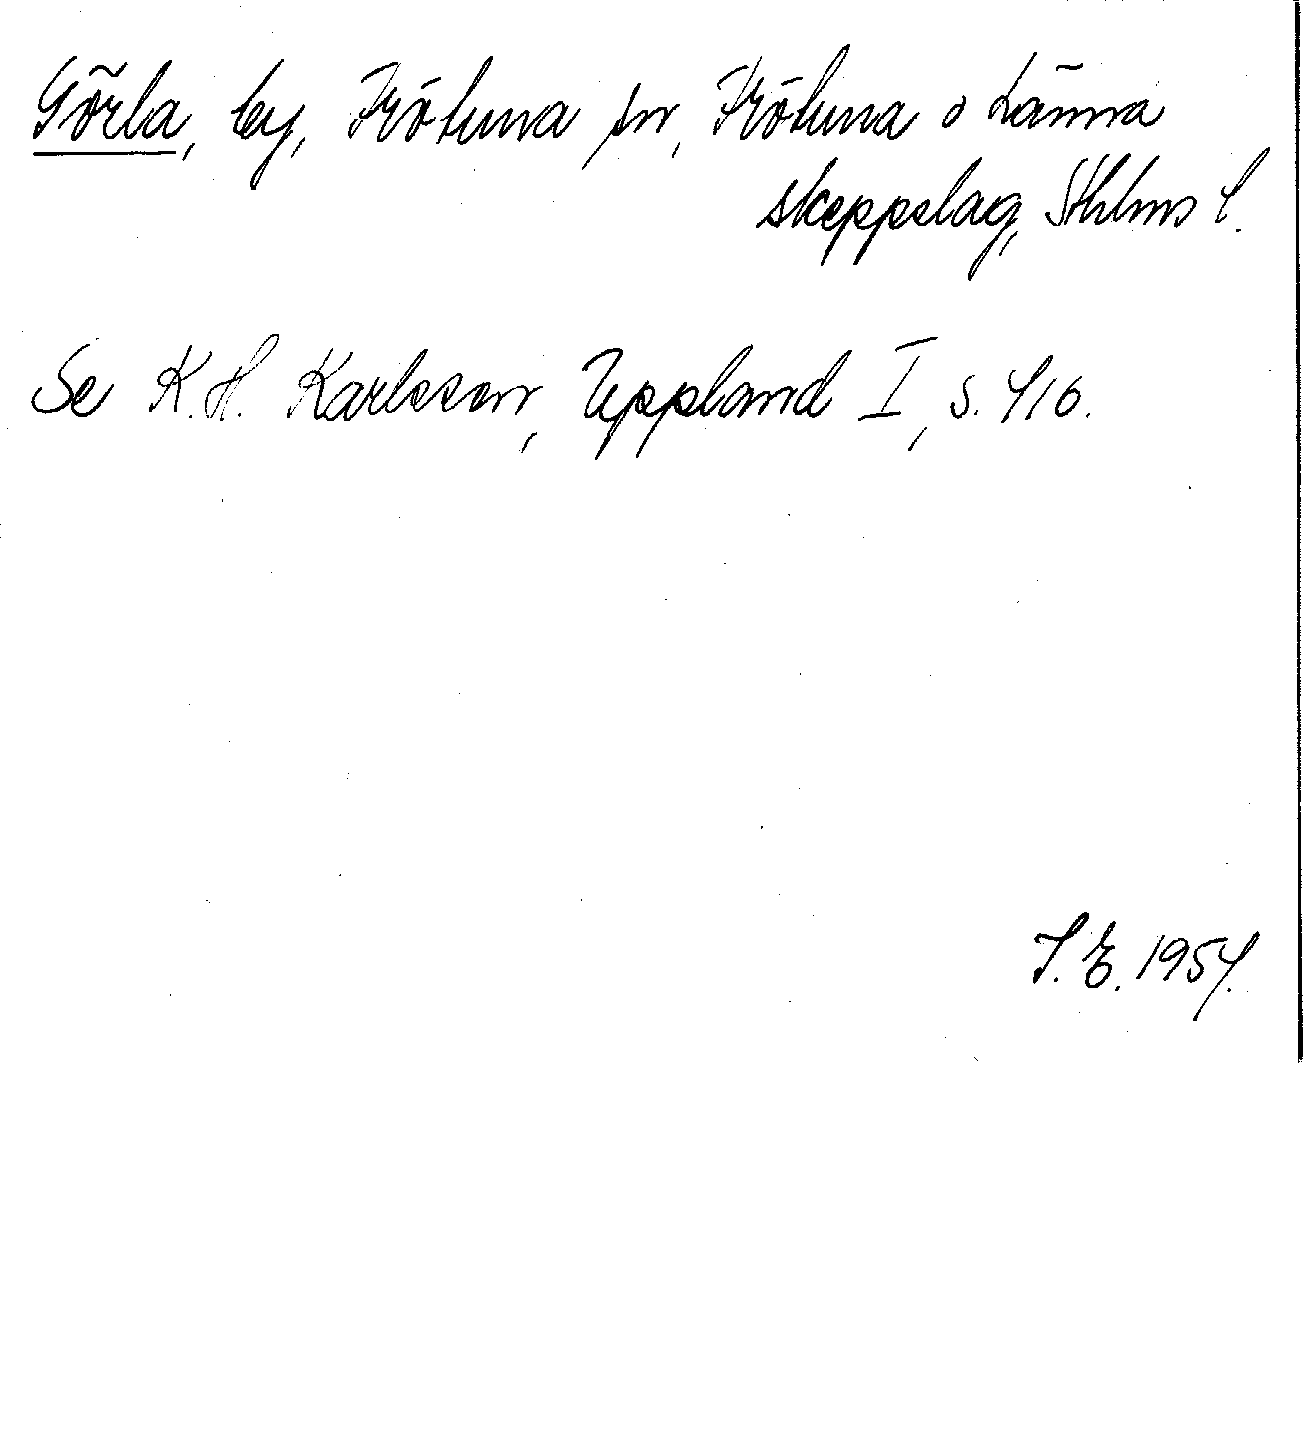 Görla, by, Frötuna sn, Frötuna o Länna
skeppslag, Sthlms l.
Se K.H. Karlsson, Uppland I, s. 416.
S.E. 1954.